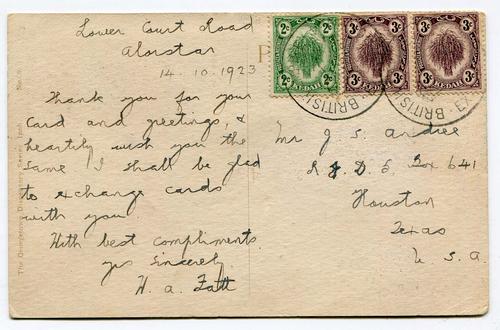 Lower Court Road
Alorstar
14.10.1923
Thank you for your
card and greetings, &
heartily wish you the
same I shall be glad
to exchange cards
with you
With best compliments
yrs sincerely
H. A. Fatt
Mr J S. Andree
Box 641
Houston
Texas
U. S. A.
2c 2c
KEDAH
3c 3c
KEDAH
3c 3c
KEDAH
BRITISH
BRITISH